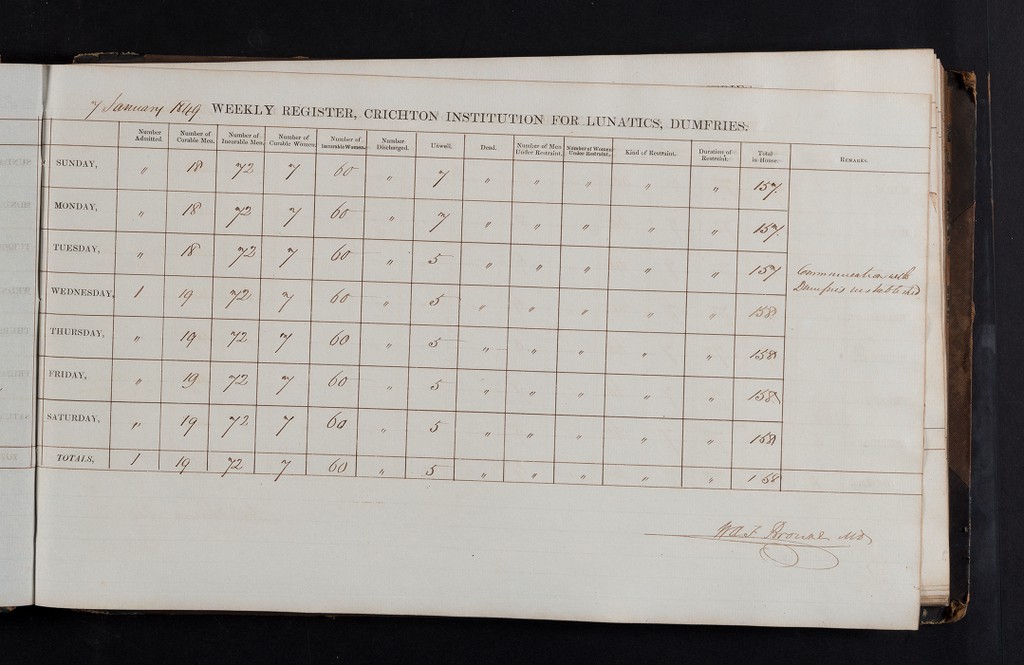 7 January 1849 WEEKLY REGISTER, CRICHTON INSTITUTION FOR LUNATICS, DUMFRIES.
Number Admitted. Number of Curable Men. Number of Incurable Men. Number of Curable Women. Number of Incurable Women. Number Discharged. Unwell. Dead. Number of Men Under Restraint. Number of Women Under Restraint. Kind of Restraint. Duration of Restraint. Total in House. REMARKS.
SUNDAY, " 18 72 7 60 " 7 " " " " " 157.
MONDAY, " 18 72 7 60 " 7 " " " " " 157.
TUESDAY, " 18 72 7 60 " 5 " " " " " 157 Communication with
WEDNESDAY, 1 19 72 7 60 " 5 " " " " " 158 Dumfries
THURSDAY, " 19 72 7 60 " 5 " " " " " 158
FRIDAY, " 19 72 7 60 " 5 " " " " " 158
SATURDAY, " 19 72 7 60 " 5 " " " " " 158
TOTALS, 1 19 72 7 60 " 5 " " " " " 158
W A F Browne MD